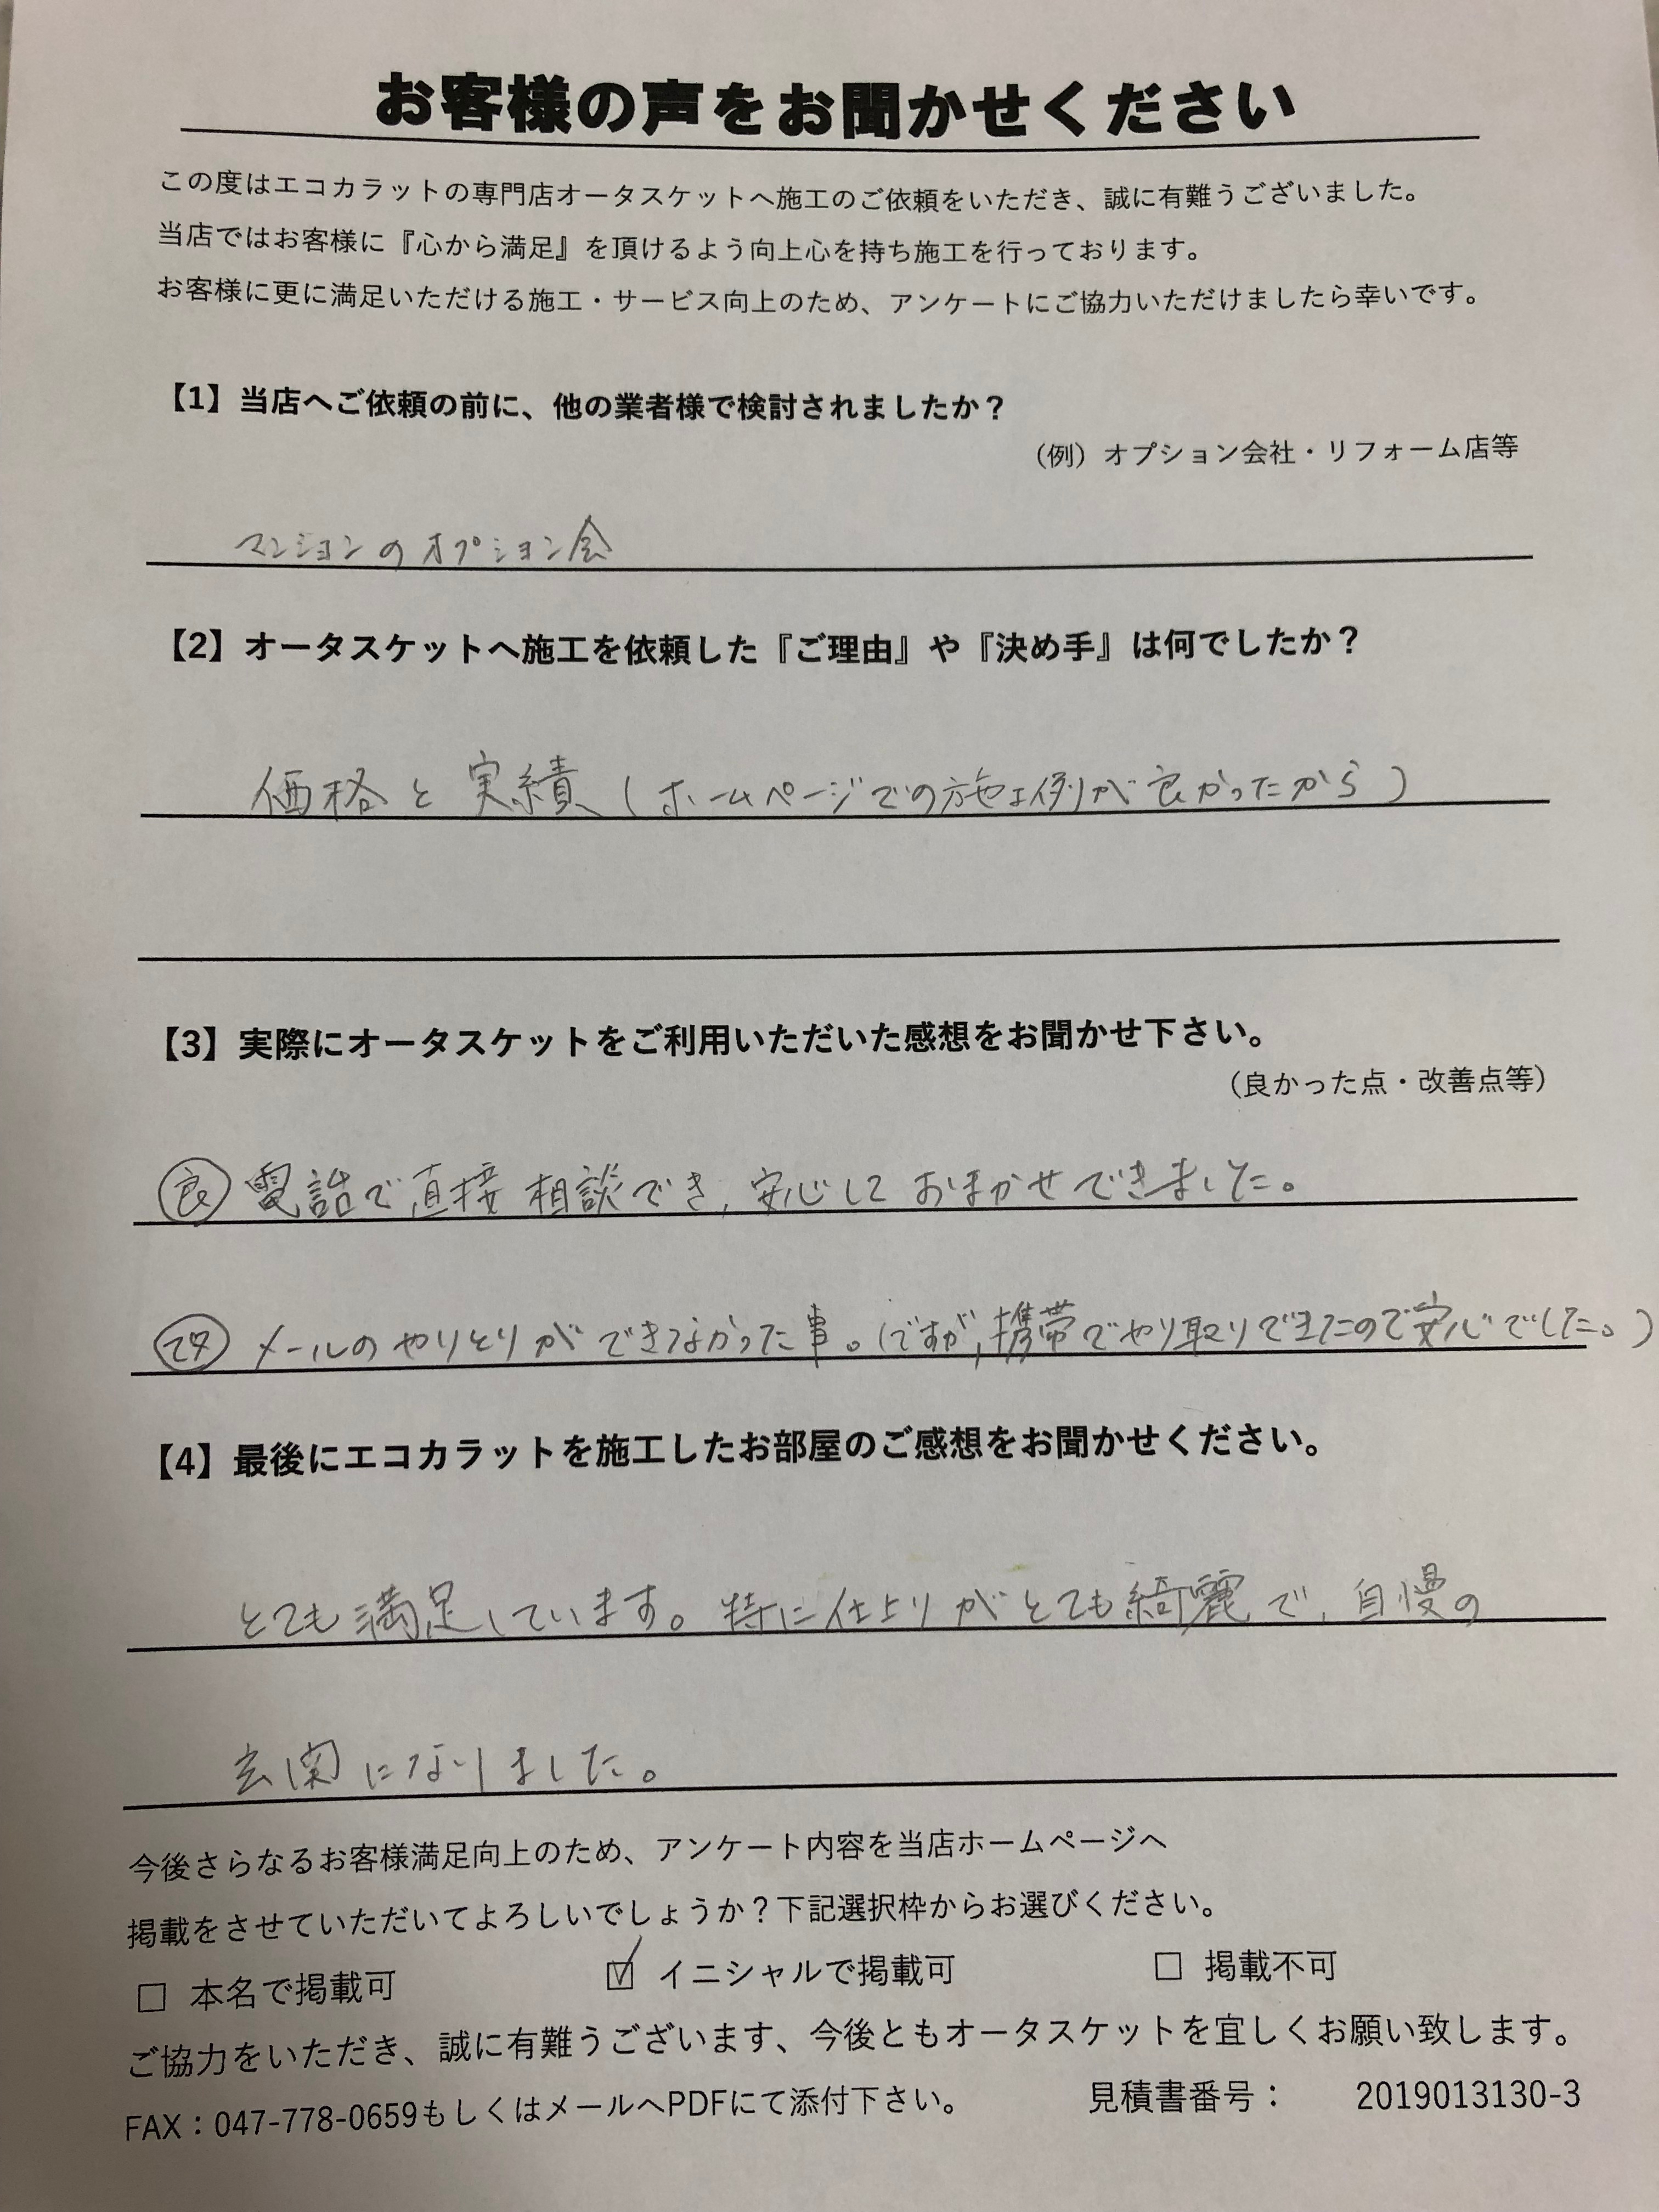 お客様の声をお聞かせください
この度はエコカラットの専門店オータスケットへ施工のご依頼をいただき、誠に有難うございました。
当店ではお客様に『心から満足』を頂けるよう向上心を持ち施工を行っております。
お客様に更に満足いただける施工・サービス向上のため、アンケートにご協力いただけましたら幸いです。
【1】当店へご依頼の前に、他の業者様で検討されましたか？
（例）オプション会社・リフォーム店等
マンションのオプション会
【2】オータスケットへ施工を依頼した『ご理由』や『決め手』は何でしたか？
価格と実績（ホームページでの施工例が良かったから）
【3】実際にオータスケットをご利用いただいた感想をお聞かせ下さい。
（良かった点・改善点等）
良 電話で直接相談でき、安心しておまかせできました。
メールのやりとりができなかった事。（ですが、携帯でやり取りできたので安心でした。）
【4】最後にエコカラットを施工したお部屋のご感想をお聞かせください。
とても満足しています。特に仕上りがとても綺麗で、自慢の
玄関になりました。
今後さらなるお客様満足向上のため、アンケート内容を当店ホームページへ
掲載をさせていただいてよろしいでしょうか？下記選択枠からお選びください。
□ 本名で掲載可 ☑ イニシャルで掲載可 □ 掲載不可
ご協力をいただき、誠に有難うございます、今後ともオータスケットを宜しくお願い致します。
FAX：047-778-0659もしくはメールへPDFにて添付下さい。 見積書番号： 2019013130-3